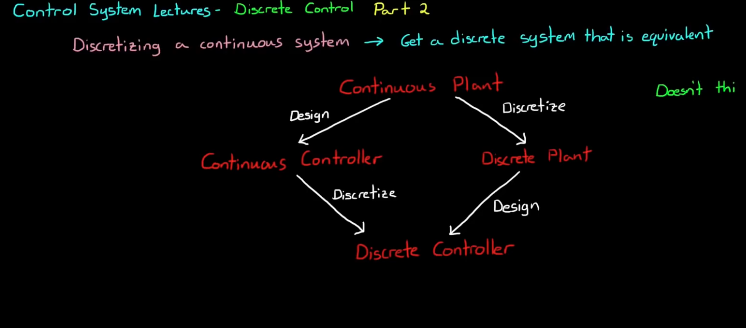 Control System Lectures - Discrete Control Part 2
Discretizing a continuous system → Get a discrete system that is equivalent
Continuous Plant
Doesn't thi
Design
Discretize
Continuous Controller
Discrete Plant
Discretize
Design
Discrete Controller